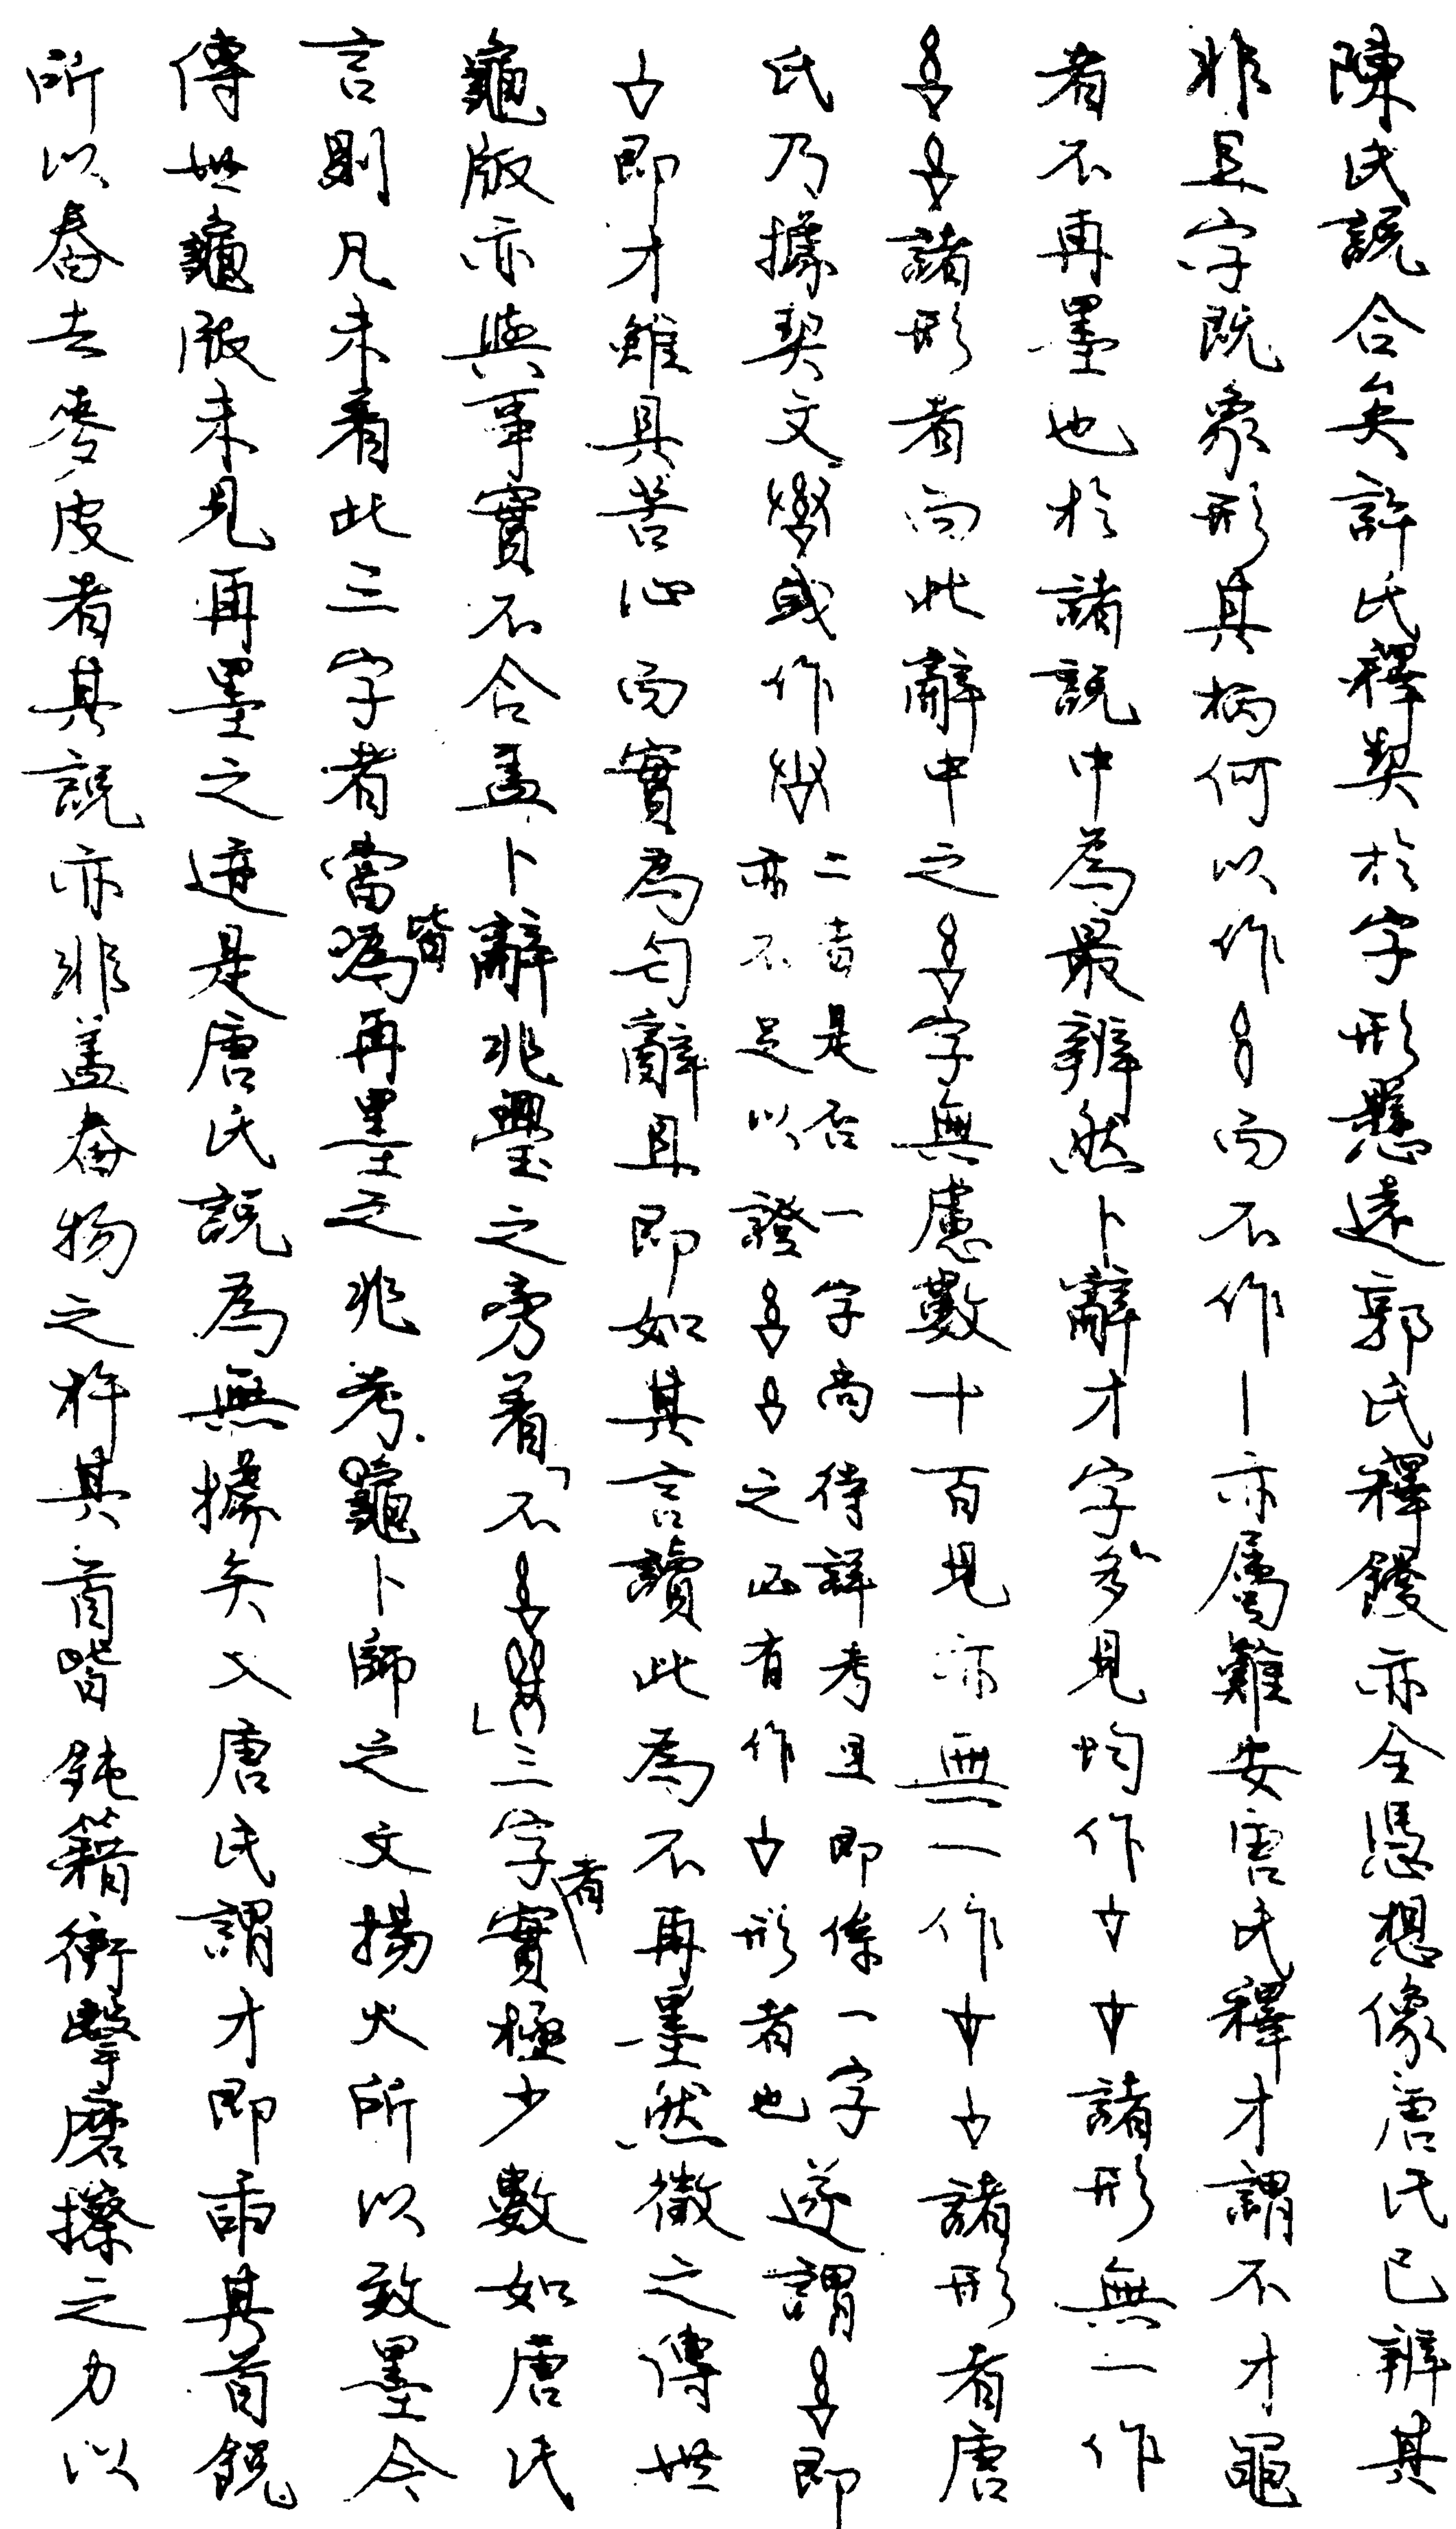 陳氏說合矣許氏釋契於字形懸遠郭氏釋鏝亦全憑想像唐氏已辨其
非且字既象形其柄何以作而不作丨亦屬難安唐氏釋才謂不才黽
者不再墨也於諸說中為最辨然卜辭才字多見均作諸形無一作
諸形者而此辭中之字無慮數十百見亦無一作諸形者唐
氏乃據契文或作二者是否一字尚待詳考且即係一字亦不足以證之必有作形者也遂謂即
即才雖具苦心而實為匄辭且即如其言讀此為不再墨然徵之傳世
龜版亦與事實不合蓋卜辭兆舋之旁着「不」三字者實極少數如唐氏
言則凡未着此三字者當皆為再墨之兆考龜卜師之文揚火所以致墨今
傳世龜版未見再墨之迹是唐氏說為無據矣又唐氏謂才即臿其首銳
所以舂去麥皮者其說亦非蓋舂物之杵其首皆鈍藉衝擊磨擦之力以